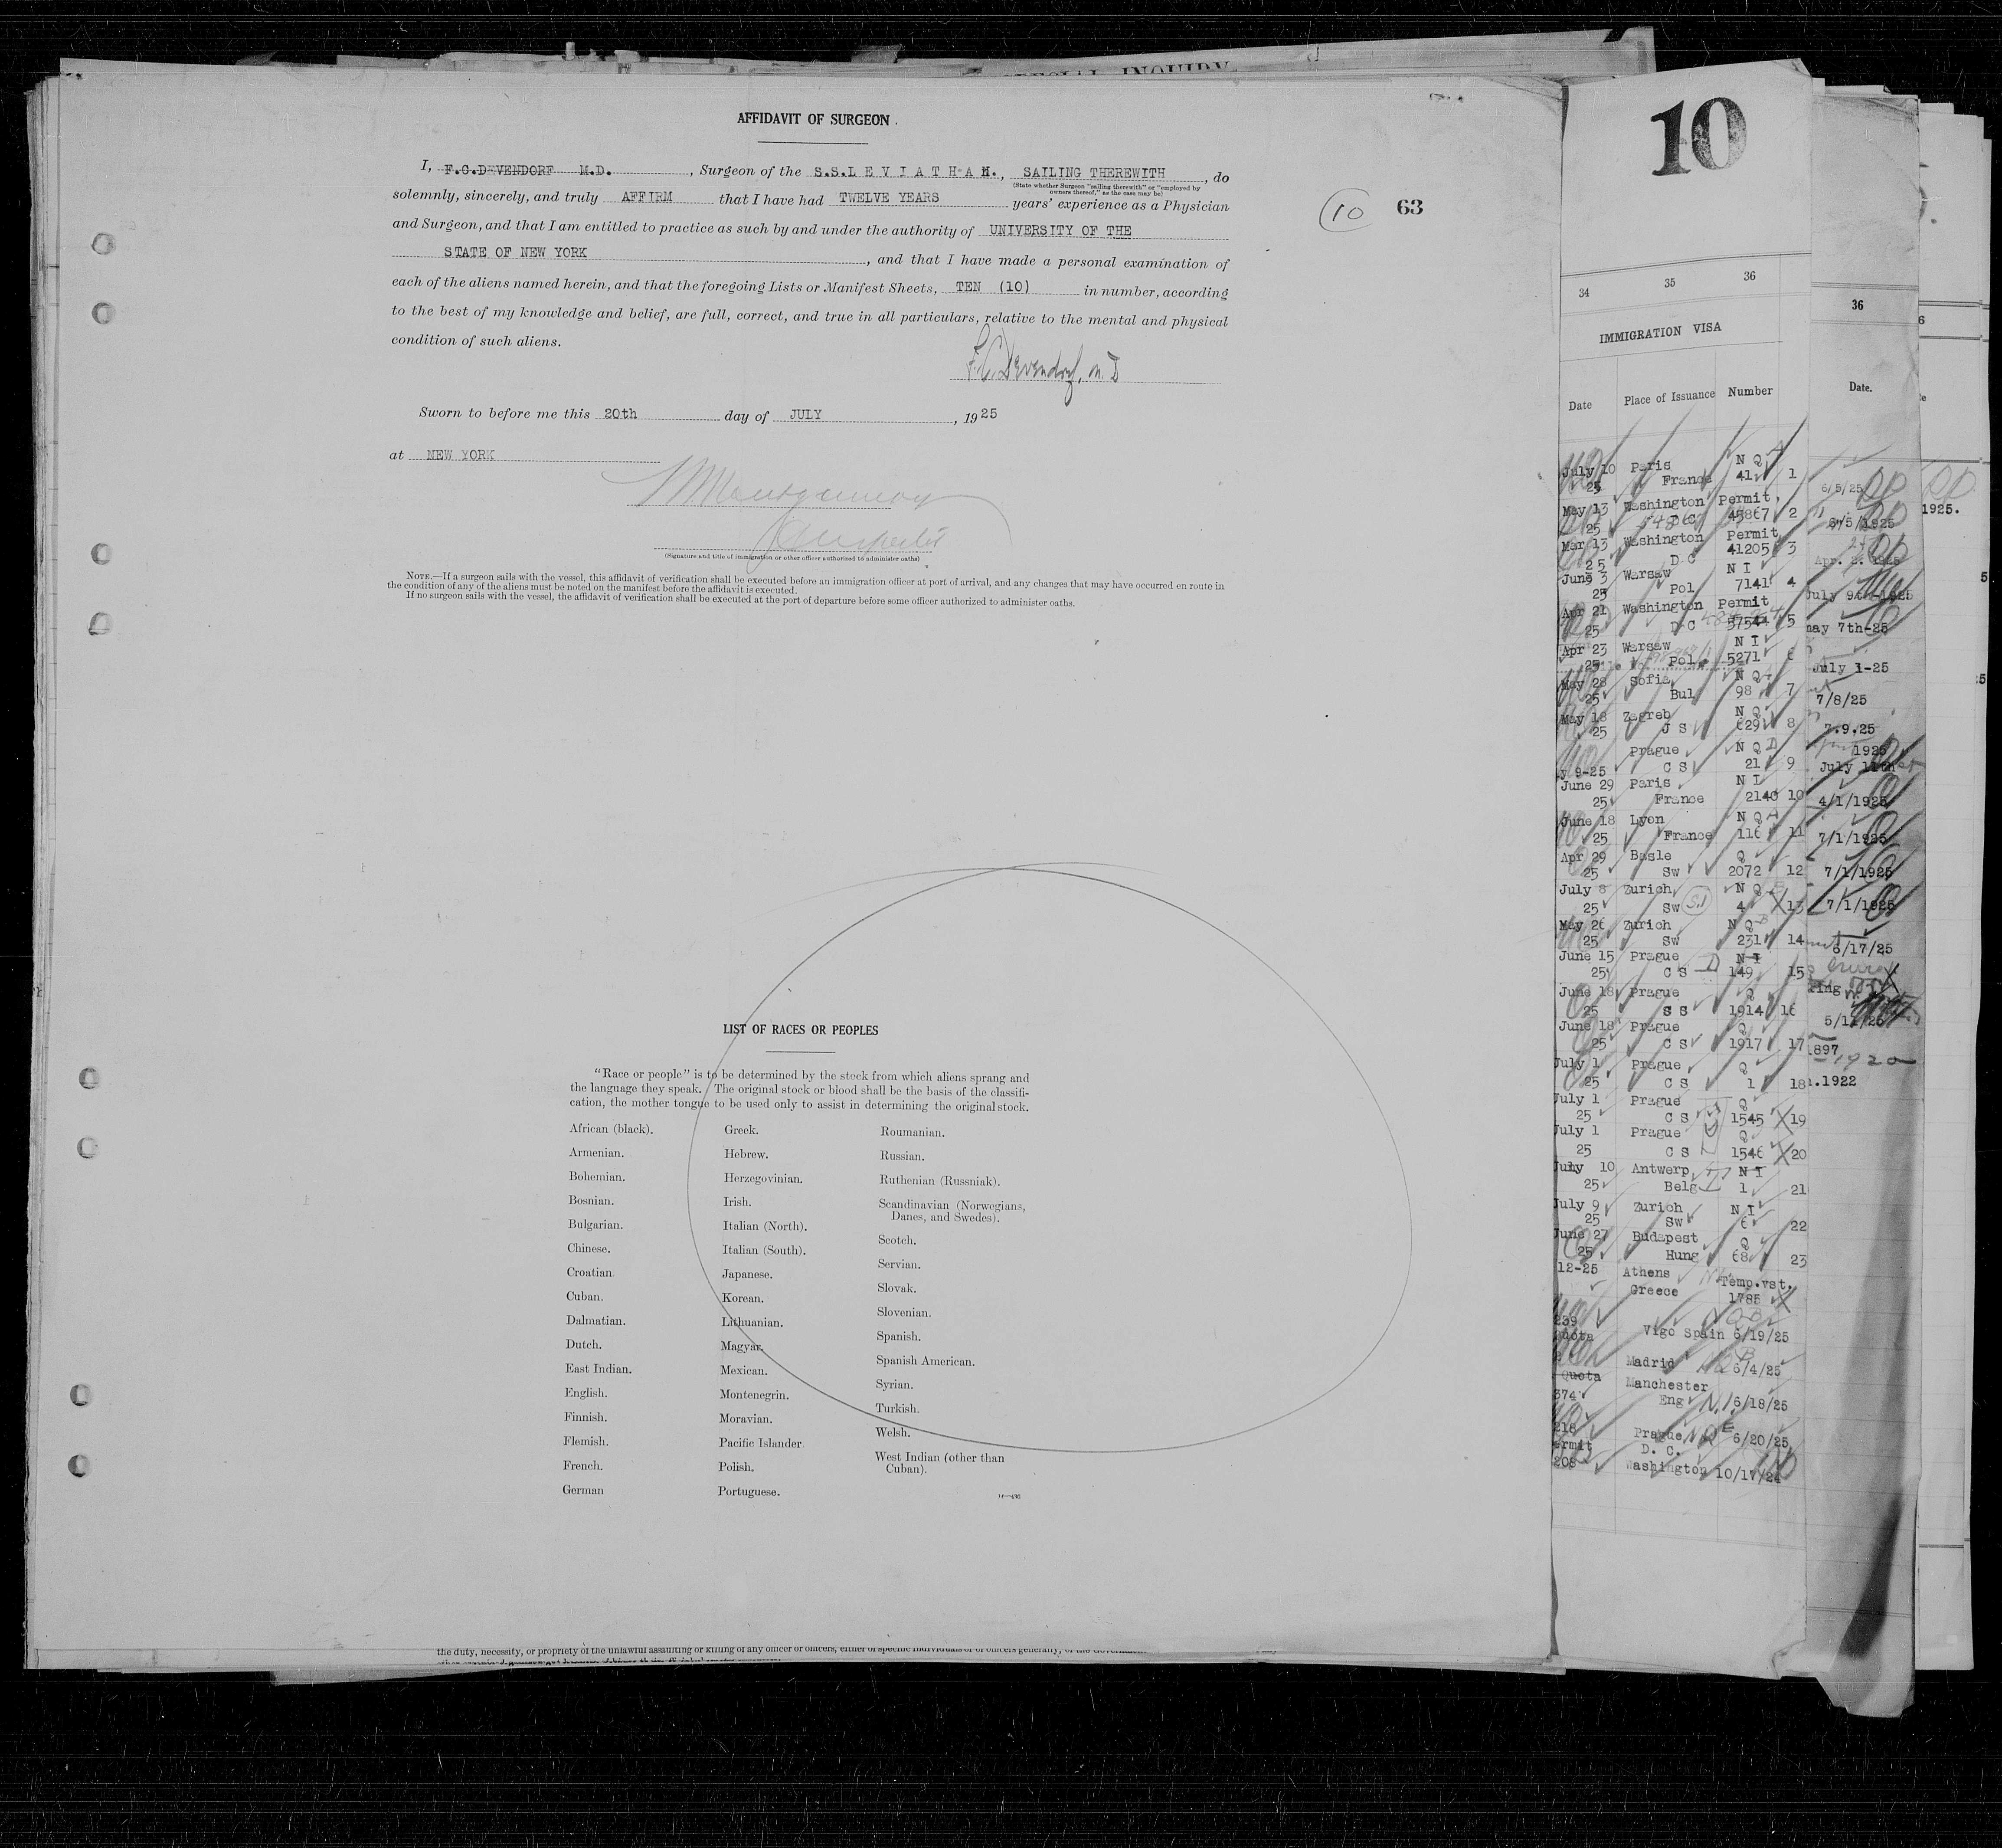 SPECIAL INQUIRY
AFFIDAVIT OF SURGEON.
I, F.C.DEVENDORF M.D., Surgeon of the S.S.L E V I A T H A N., SAILING THEREWITH, do
(State whether Surgeon "sailing therewith" or "employed by
owners thereof," as the case may be)
solemnly, sincerely, and truly AFFIRM that I have had TWELVE YEARS years' experience as a Physician
and Surgeon, and that I am entitled to practice as such by and under the authority of UNIVERSITY OF THE
STATE OF NEW YORK, and that I have made a personal examination of
each of the aliens named herein, and that the foregoing Lists or Manifest Sheets, TEN (10) in number, according
to the best of my knowledge and belief, are full, correct, and true in all particulars, relative to the mental and physical
condition of such aliens.
F.C. Devendorf, M.D
Sworn to before me this 20th day of JULY, 1925
at NEW YORK
Montgomery
Inspector
(Signature and title of immigration or other officer authorized to administer oaths)
NOTE.—If a surgeon sails with the vessel, this affidavit of verification shall be executed before an immigration officer at port of arrival, and any changes that may have occurred en route in
the condition of any of the aliens must be noted on the manifest before the affidavit is executed.
If no surgeon sails with the vessel, the affidavit of verification shall be executed at the port of departure before some officer authorized to administer oaths.
10 63
LIST OF RACES OR PEOPLES
"Race or people" is to be determined by the stock from which aliens sprang and
the language they speak. The original stock or blood shall be the basis of the classifi-
cation, the mother tongue to be used only to assist in determining the original stock.
African (black).
Armenian.
Bohemian.
Bosnian.
Bulgarian.
Chinese.
Croatian.
Cuban.
Dalmatian.
Dutch.
East Indian.
English.
Finnish.
Flemish.
French.
German
Greek.
Hebrew.
Herzegovinian.
Irish.
Italian (North).
Italian (South).
Japanese.
Korean.
Lithuanian.
Magyar.
Mexican.
Montenegrin.
Moravian.
Pacific Islander.
Polish.
Portuguese.
Roumanian.
Russian.
Ruthenian (Russniak).
Scandinavian (Norwegians,
Danes, and Swedes).
Scotch.
Servian.
Slovak.
Slovenian.
Spanish.
Spanish American.
Syrian.
Turkish.
Welsh.
West Indian (other than
Cuban).
the duty, necessity, or propriety of the unlawful assaulting or killing of any officer or officers, either of specific individuals or of officers generally, of the Government
10
34 35 36
IMMIGRATION VISA
Date Place of Issuance Number
July 10 Paris N Q
25 France 41 1
May 13 Washington Permit
25 D C 45867 2
Mar 13 Washington Permit
25 D C 41205 3
June 3 Warsaw N I
25 Pol 7141 4
Apr 21 Washington Permit
25 D C 57544 5
Apr 23 Warsaw N I
25 Pol 5271 6
May 28 Sofia N Q
25 Bul 98 7
May 18 Zagreb N Q
25 J S 629 8
Prague N Q
y 9-25 C S 21 9
June 29 Paris N I
25 France 2140 10
June 18 Lyon N Q
25 France 116 11
Apr 29 Basle Q
25 Sw 2072 12
July 8 Zurich N Q
25 Sw S.I 4 13
May 26 Zurich N Q
25 Sw 231 14
June 15 Prague N I
25 C S 149 15
June 18 Prague Q
25 S S 1914 16
June 18 Prague Q
25 C S 1917 17
July 1 Prague Q
25 C S 1 18
July 1 Prague Q
25 C S 1545 19
July 1 Prague Q
25 C S 1546 20
July 10 Antwerp N I
25 Belg 1 21
July 9 Zurich N I
25 Sw 6 22
June 27 Budapest Q
25 Hung 68 23
12-25 Athens Temp.vst.
Greece 1785
239
uota Vigo Spain 6/19/25
Madrid 6/4/25
Quota Manchester
374 Eng N.I 6/18/25
218 Prague 6/20/25
ermit D. C.
205 Washington 10/17/24
36
Date.
6/5/25
6/5/1925
Apr. 2. 1925
July 9th-1925
may 7th-25
July 1-25
7/8/25
7.9.25
1925
July 11th
4/1/1925
7/1/1925
7/1/1925
7/1/1925
6/17/25
5/11/25
1897
1920
1.1922
1925.